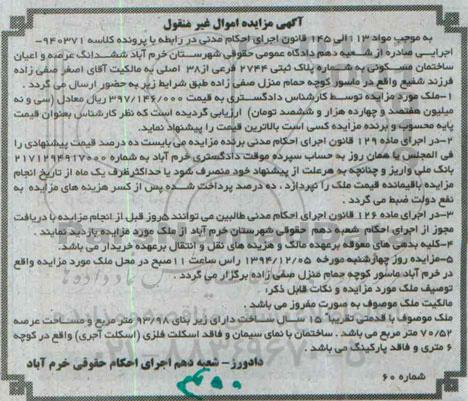 آگهی مزایده اموال غیر منقول
به موجب مواد ۱۱۳ الی ۱۴۵ قانون اجرای احکام مدنی در رابطه با پرونده کلاسه ۹۴۰۳۷۱-
اجرایی صادره از شعبه دهم دادگاه عمومی حقوقی شهرستان خرم آباد ششدانگ عرصه و اعیان
ساختمان مسکونی به شماره پلاک ثبتی ۲۷۴۴ فرعی از ۳۸ اصلی به مالکیت آقای اصغر صفی زاده
فرزند شفیع واقع در ماسور کوچه حمام منزل صفی زاده طبق شرایط زیر به حضور ارسال می گردد .
۱-ملک مورد مزایده توسط کارشناس دادگستری به قیمت ۳۹۷/۱۴۶/۰۰۰ ریال معادل (سی و نه
میلیون هفتصد و چهارده هزار و ششصد تومان) ارزیابی گردیده است که نظر کارشناس بعنوان قیمت
پایه محسوب و برنده مزایده کسی است بالاترین قیمت را پیشنهاد نماید.
۲-در ماده ۱۲۹ قانون اجرای احکام مدنی برنده مزایده می بایست ده درصد قیمت پیشنهادی را
فی المجلس یا همان روز به حساب سپرده موقت دادگستری خرم آباد به شماره ۲۱۷۱۲۹۴۹۱۷۰۰۰
بانک ملی واریز و چنانچه به هرعلت از پیشنهاد خود منصرف شود یا حداکثرظرف یک ماه از تاریخ انجام
مزایده باقیمانده قیمت ملک را نپردازد . ده درصد پرداخت شده پس از کسر هزینه های مزایده به
نفع دولت ضبط می گردد .
۳-در اجرای ماده ۱۲۶ قانون اجرای احکام مدنی طالبین می توانند ۵روز قبل از انجام مزایده با دریافت
مجوز از اجرای احکام شعبه دهم حقوقی شهرستان خرم آباد از ملک مورد مزایده بازدید نمایند.
۴-کلیه بدهی های معوقه برعهده مالک و هزینه های نقل و انتقال برعهده خریدار می باشد.
۵-مزایده روز چهارشنبه مورخه ۱۳۹۴/۱۲/۰۵ راس ساعت ۱۱صبح در محل ملک مورد مزایده واقع
در خرم آباد ماسور کوچه حمام منزل صفی زاده برگزار می گردد .
توصیف ملک مورد مزایده و نکات قابل ذکر:
مالکیت ملک موصوف به صورت مفروز می باشد .
ملک موصوف با قدمتی تقریبا ۱۵ سال ساخت دارای زیر بنای ۹۳/۹۸ متر مربع و مساحت عرصه
۷۰/۵۲ متر مربع می باشد . ساختمان با نمای سیمان و فاقد اسکلت فلزی (اسکلت آجری) واقع در کوچه
۶ متری و فاقد پارکینگ می باشد .
دادورز- شعبه دهم اجرای احکام حقوقی خرم آباد
شماره ۶۰